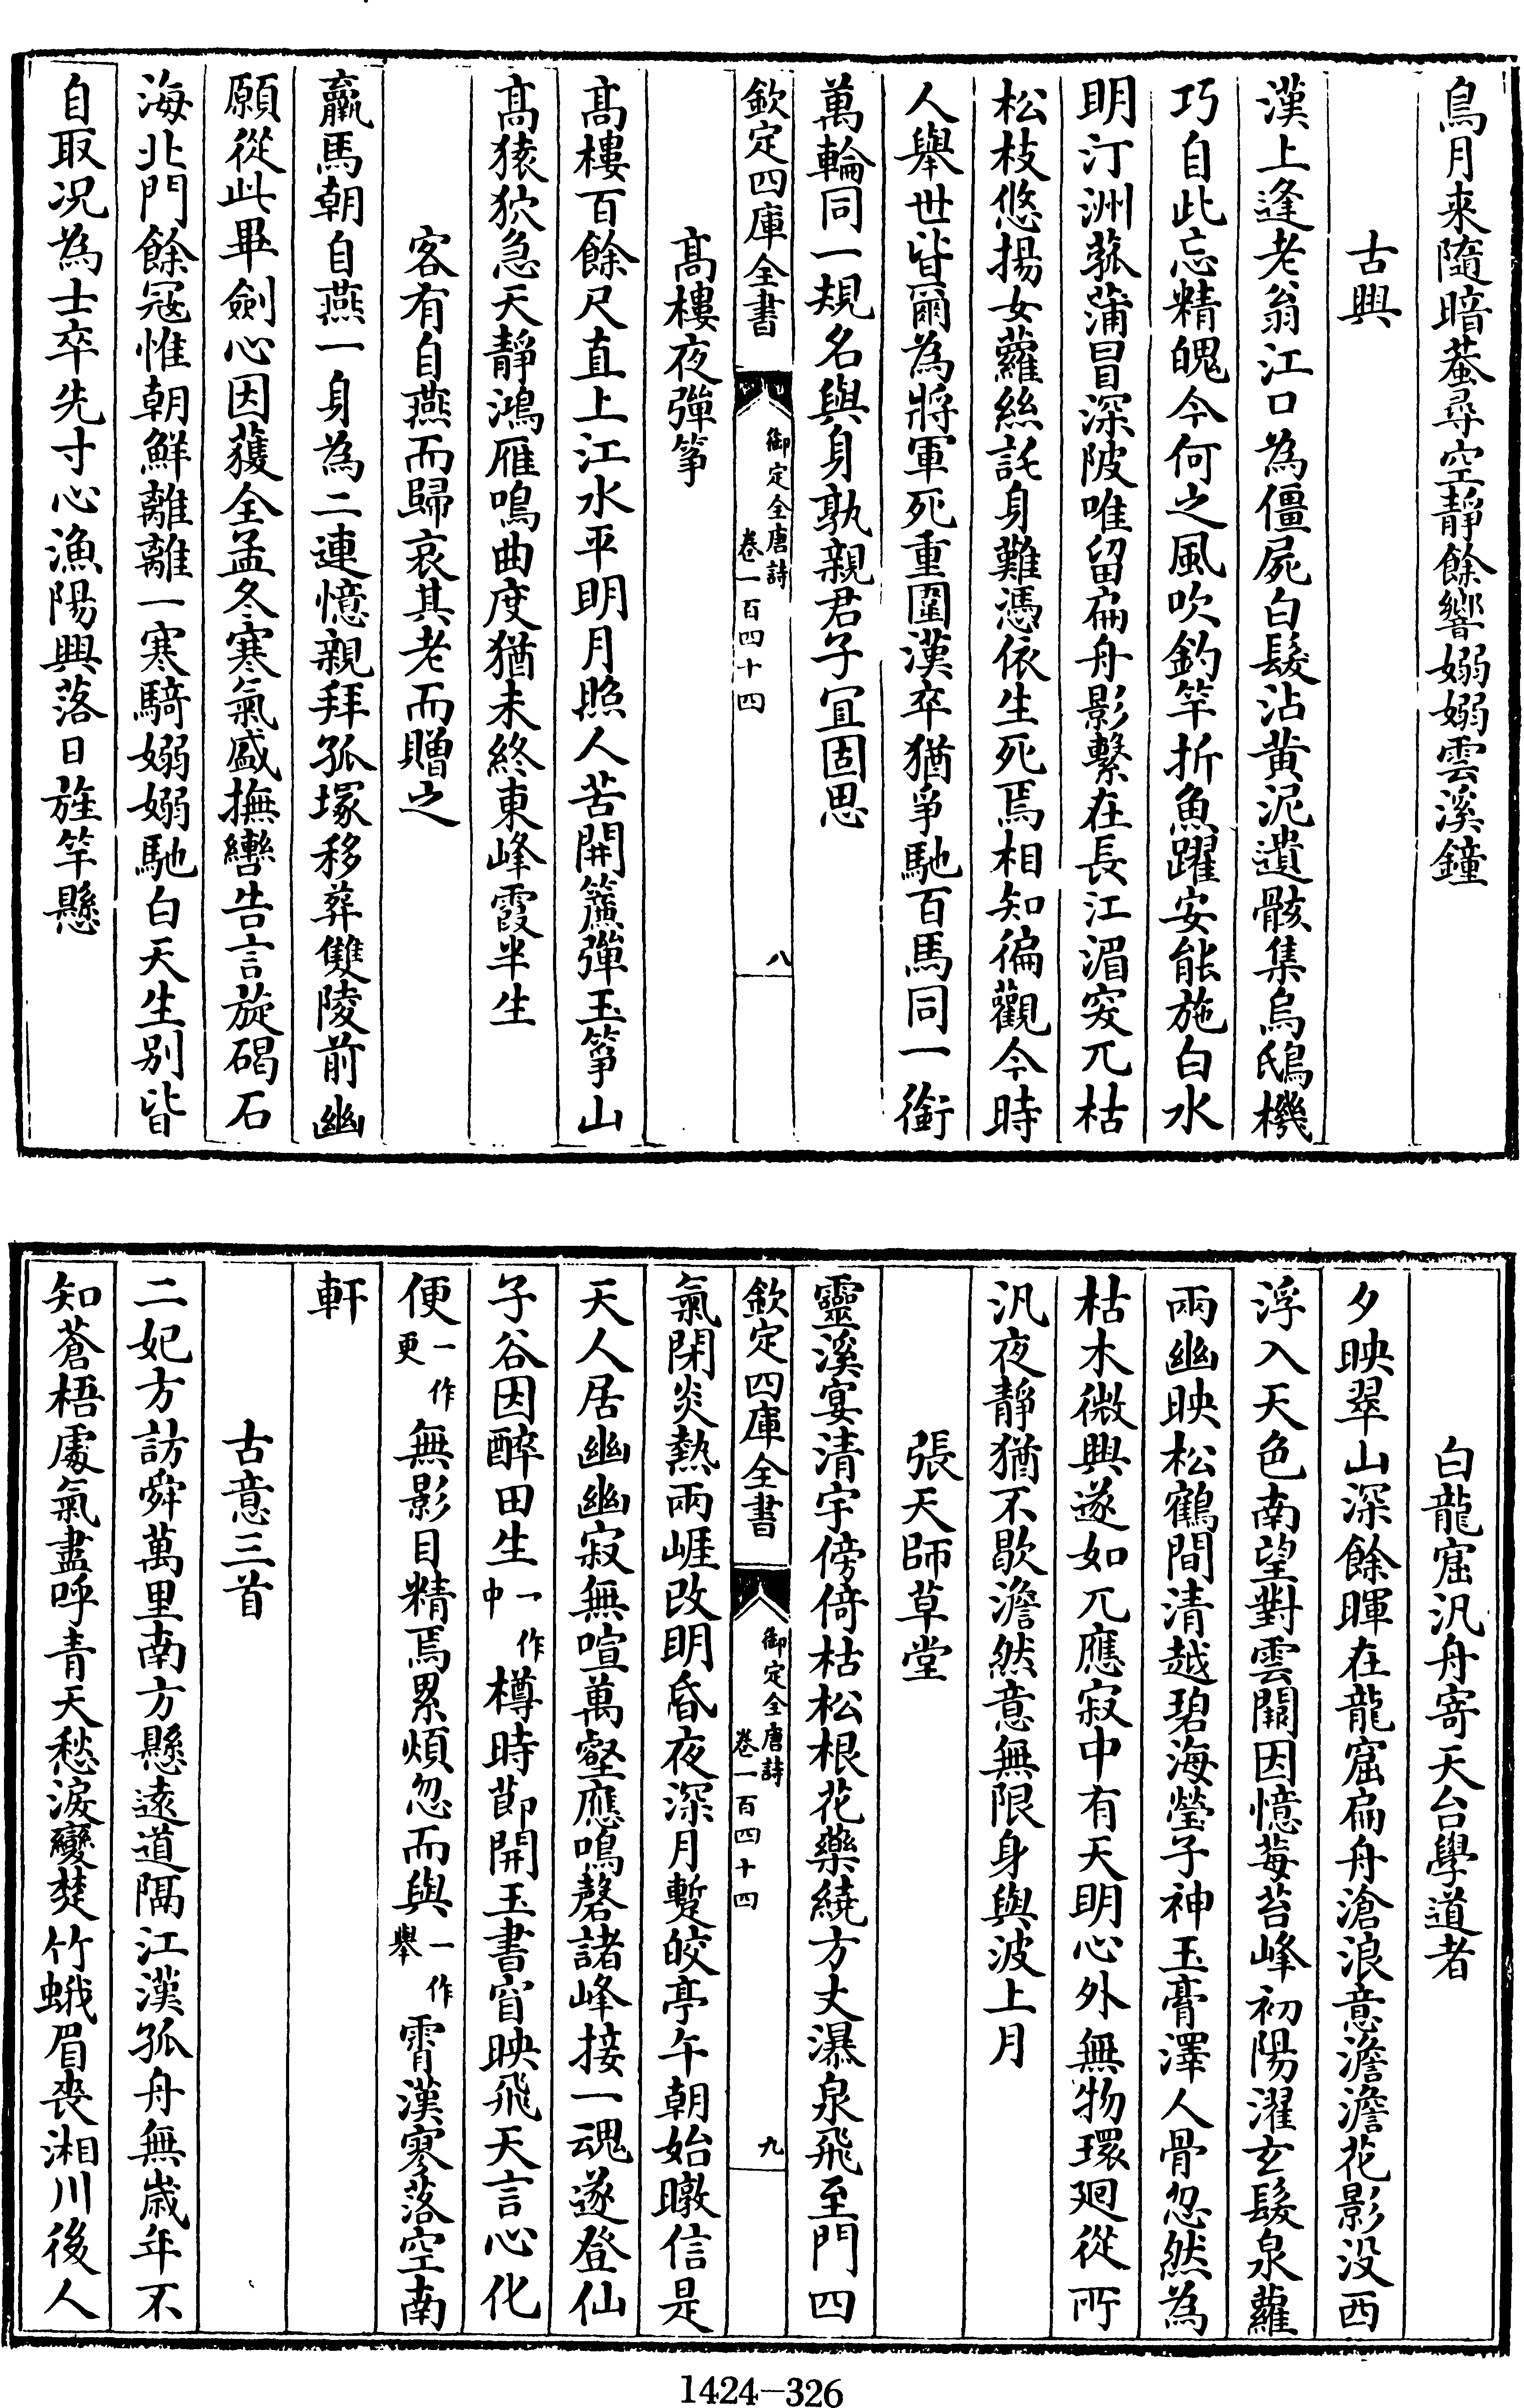 鳥月来隨暗蛬尋空靜餘響嫋嫋雲溪鐘
古興
漢上逢老翁江口為僵屍白髮沾黃泥遺骸集烏鴟機
巧自此忘精魄今何之風吹釣竿折魚躍安能施白水
明汀洲菰蒲冒深陂唯留扁舟影繫在長江湄突兀枯
松枝悠揚女蘿絲託身難憑依生死焉相知徧觀今時
人舉世皆爾為將軍死重圍漢卒猶爭馳百馬同一銜
萬輪同一規名與身孰親君子宜固思
欽定四庫全書 御定全唐詩 卷一百四十四 八
高樓夜彈筝
高樓百餘尺直上江水平明月照人苦開簾彈玉筝山
高猿狖急天靜鴻雁鳴曲度猶未終東峰霞半生
客有自燕而歸哀其老而贈之
羸馬朝自燕一身為二連憶親拜孤塚移葬雙陵前幽
願從此畢劍心因獲全孟冬寒氣盛撫轡告言旋碣石
海北門餘寇惟朝鮮離離一寒騎嫋嫋馳白天生別皆
自取况為士卒先寸心漁陽興落日旌竿懸
白龍窟汎舟寄天台學道者
夕映翠山深餘暉在龍窟扁舟滄浪意澹澹花影没西
浮入天色南望對雲闕因憶莓苔峰初陽濯玄髮泉蘿
兩幽映松鶴間清越碧海瑩子神玉膏澤人骨忽然為
枯木微興遂如兀應寂中有天明心外無物環廻從所
汎夜靜猶不歇澹然意無限身與波上月
張天師草堂
靈溪宴清宇傍倚枯松根花藥繞方丈瀑泉飛至門四
欽定四庫全書 御定全唐詩 卷一百四十四 九
氣閉炎熱兩崕改明昏夜深月暫皎亭午朝始暾信是
天人居幽幽寂無喧萬壑應鳴磬諸峰接一魂遂登仙
子谷因醉田生一作中樽時節開玉書窅映飛天言心化
便一作更無影目精焉累煩忽而與一作舉霄漢寒落空南
軒
古意三首
二妃方訪舜萬里南方懸遠道隔江漢孤舟無歲年不
知蒼梧處氣盡呼青天愁淚變楚竹蛾眉喪湘川後人
1424-326